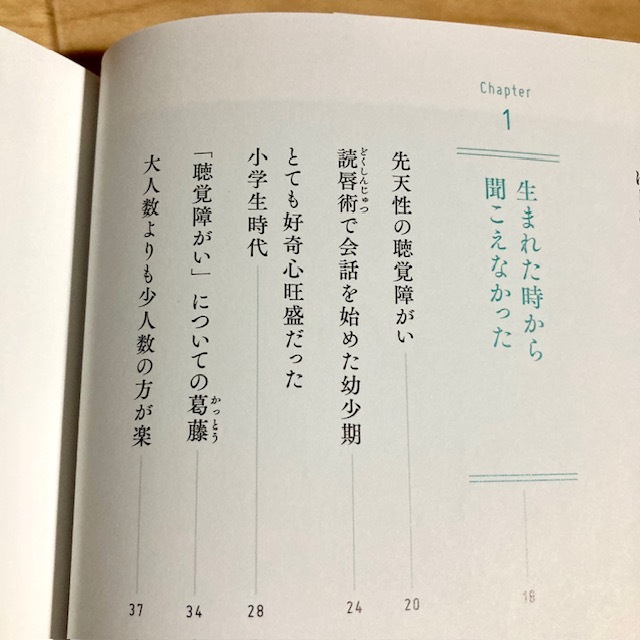 Chapter
1
生まれた時から
聞こえなかった
18
先天性の聴覚障がい
20
読唇術で会話を始めた幼少期
どくしんじゅつ
24
とても好奇心旺盛だった
小学生時代
28
「聴覚障がい」についての葛藤
かっとう
34
大人数よりも少人数の方が楽
37